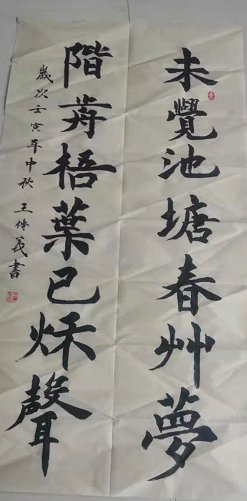 未覺池塘春艸夢
階歬梧葉已秌聲
歲次壬寅年中秋 王俊義書